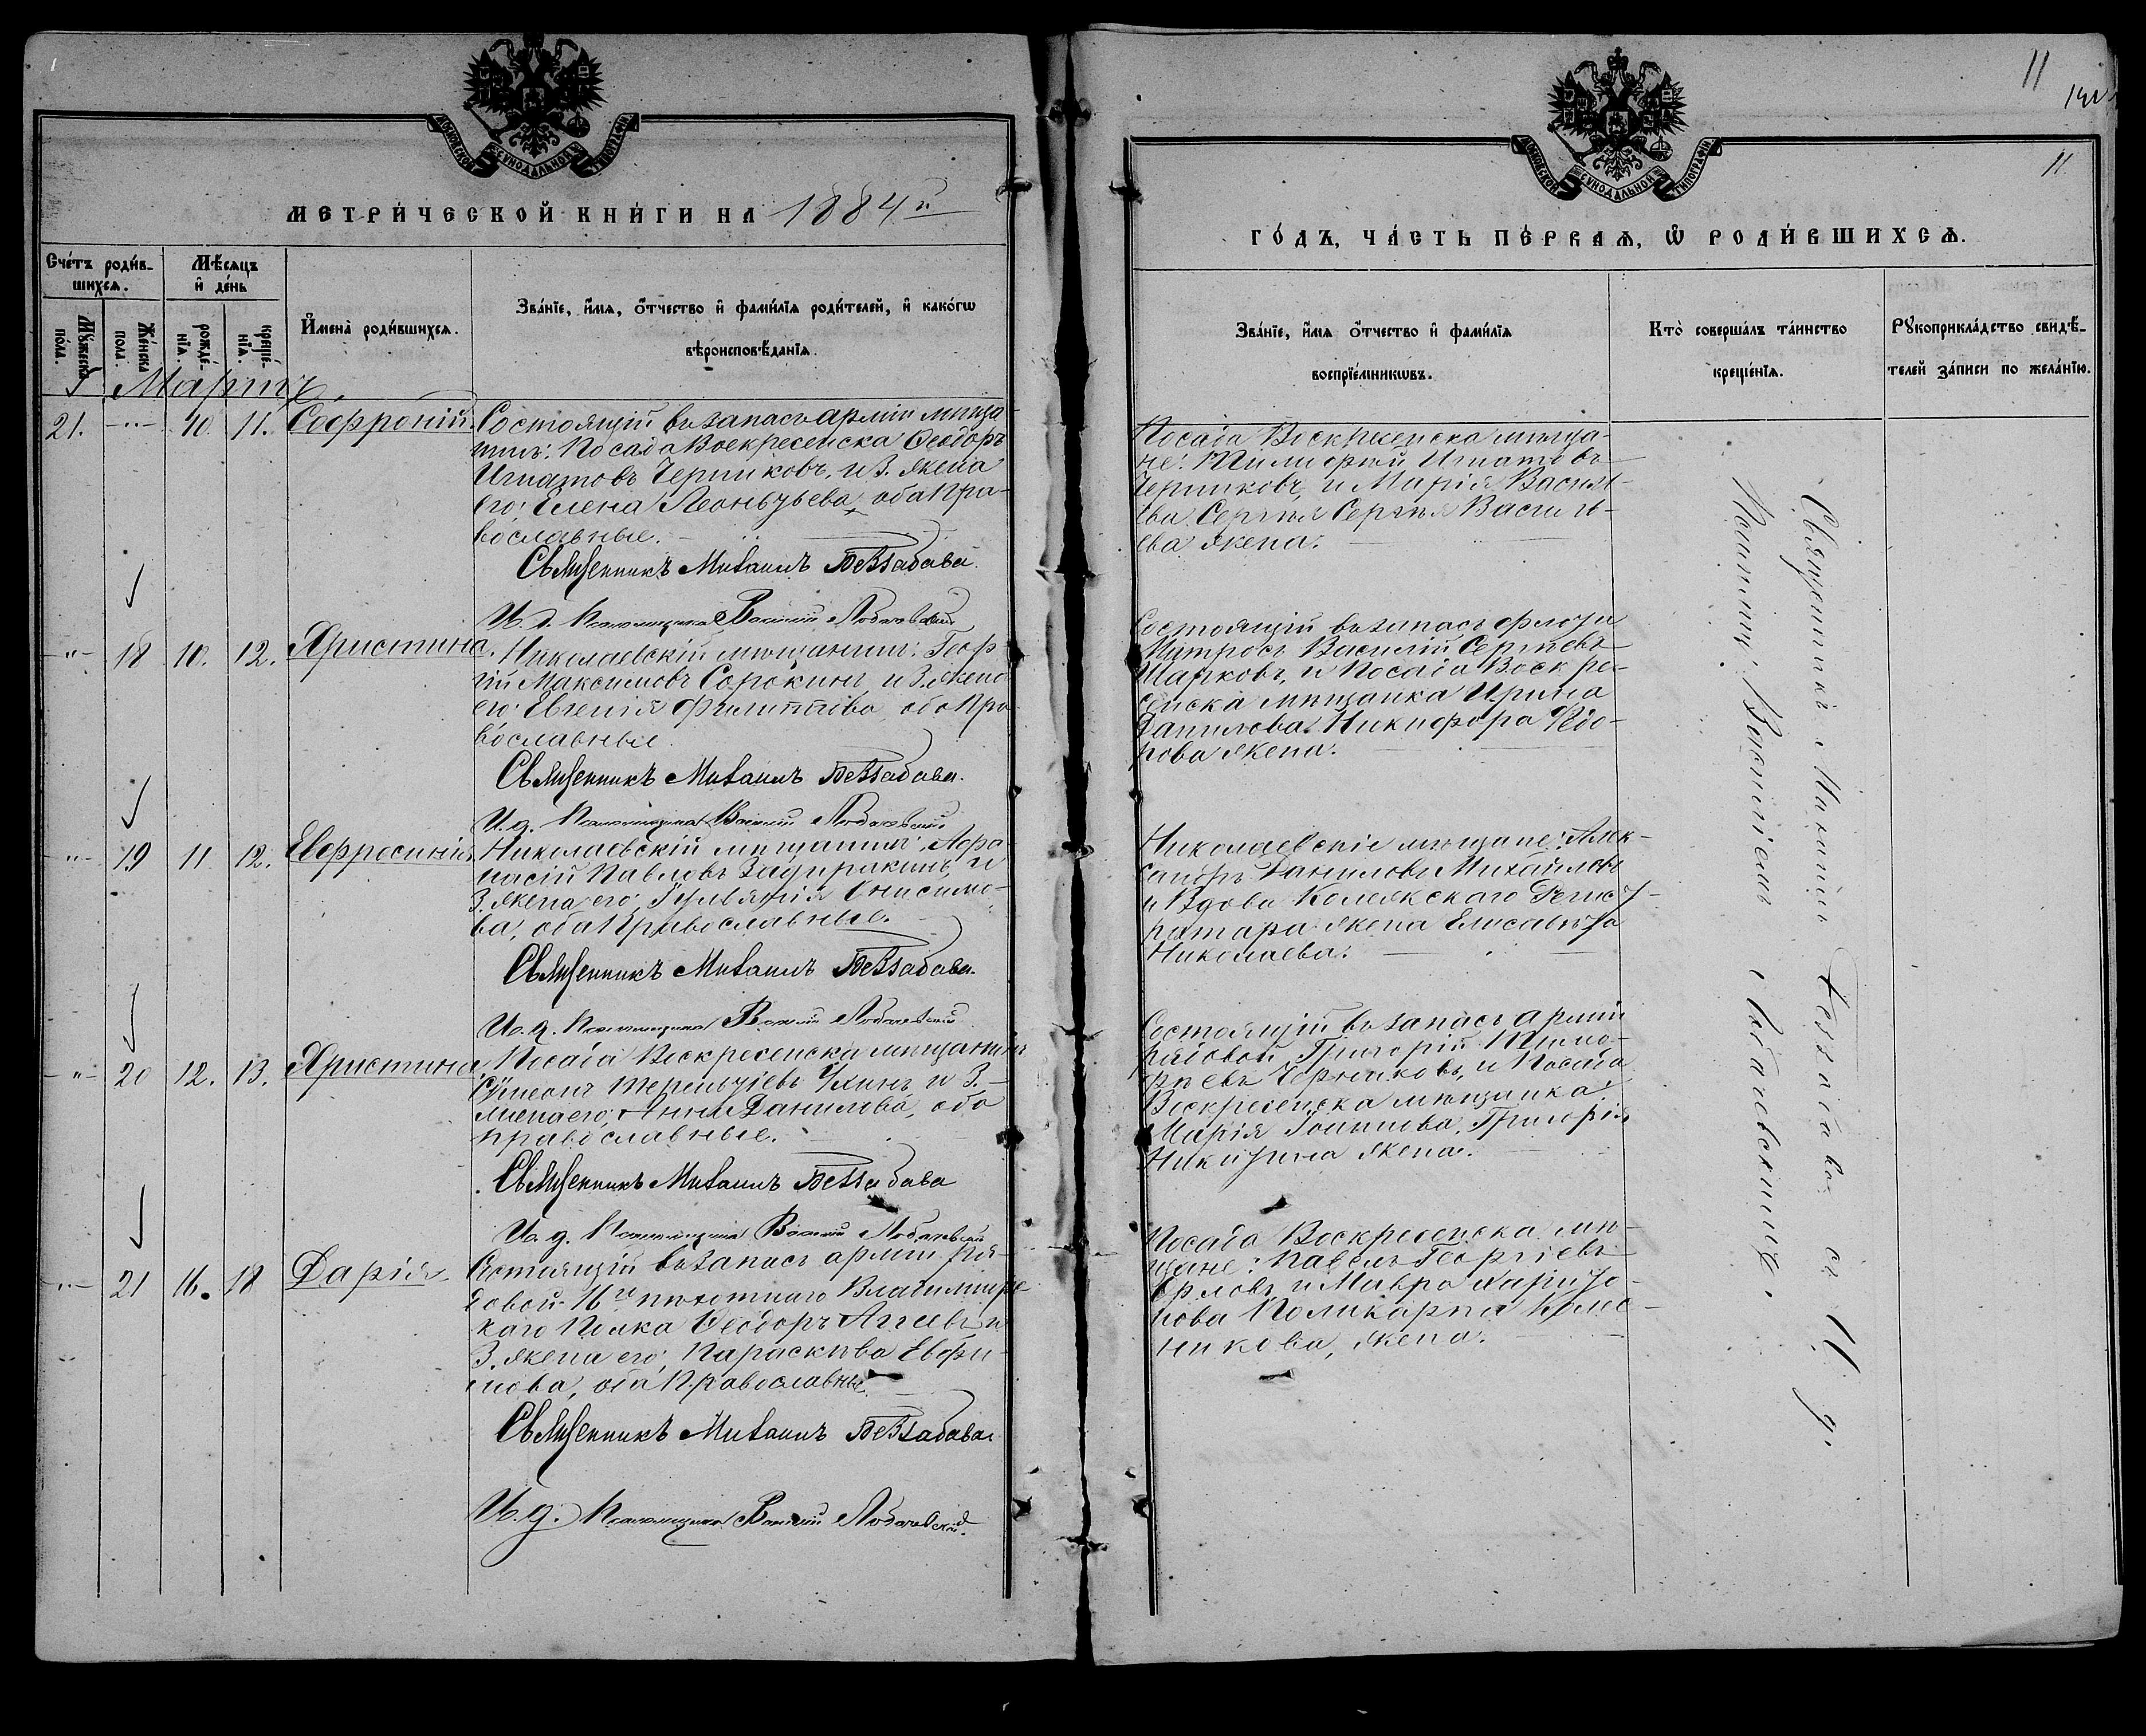 11
11
МОСКОВСКОЙ СѴНОДАЛЬНОЙ ТИПОГРАФІИ
МЕТРИ́ЧЕСКОЙ КНИ́ГИ НА 1884й
Сче́тъ роди́в-
шихсѧ.
Мѣ́сѧцъ
и҆ де́нь
Мꙋ́жеска
пола.
Же́нска
пола.
рожде́-
нїѧ.
креще́-
нїѧ.
И҆мена̀ роди́вшихсѧ.
Зва́нїе, и҆́мѧ, ѻ҆́тчество и҆ фами́лїѧ роди́телей, и҆ како́гѡ
вѣроисповѣ́данїѧ.
Мартъ
21. -"- 10. 11. Софроній. Состоящій въ запасѣ арміи мѣща-
нинъ: Посада Воскресенска Ѳеодоръ
Игнатовъ Черниковъ, и З. жена
его: Елена Леонтьева, оба Пра-
вославные.
Священникъ Михаилъ Беззабава.
И. д. Псаломщика Василій Лобачевскій
-"- 18 10. 12. Христина. Николаевскій мѣщанинъ: Геор-
гій Максимовъ Сорокинъ и З. жена
его: Евгенія Филиппова, оба Пра-
вославные.
Священникъ Михаилъ Беззабава.
И. д. Псаломщика Василій Лобачевскій
-"- 19 11 12. Евфросинія. Николаевскій мѣщанинъ: Афа-
насій Павловъ Задиракинъ, и
З. жена его, Гульянія Онисимо-
ва, оба Православные.
Священникъ Михаилъ Беззабава.
И. д. Псаломщика Василій Лобачевскій
-"- 20 12. 13. Христина. Посада Воскресенска мѣщанинъ
Сѵмеонъ Терентіевъ Ухинъ и З.
жена его, Анна Данилова, оба
православные.
Священникъ Михаилъ Беззабава
И. д. Псаломщика Василій Лобачевскій
-"- 21 16. 18 Дарія. Состоящій въ запасѣ арміи ря-
довой 16го пѣхотнаго Владимірс-
каго Полка Ѳеодоръ Агѣевъ и
З. жена его, Параскѣва Евфи-
мова, оба Православные.
Священникъ Михаилъ Беззабава
И. д. Псаломщика Василій Лобачевскій.
МОСКОВСКОЙ СѴНОДАЛЬНОЙ ТИПОГРАФІИ
ГО́ДЪ, ЧА́СТЬ ПЕ́РВАѦ, Ѡ҆ РОДИ́ВШИХСѦ.
Зва́нїе, и҆́мѧ ѻ҆́тчество и҆ фами́лїѧ
воспрїе́мникѡвъ.
Кто̀ соверша́лъ та́инство
креще́нїѧ.
Рꙋкоприкла́дство свидѣ́-
телей за́писи по жела́нїю.
Посада Воскресенска мѣща-
не: Тимоѳей Игнатовъ
Черниковъ, и Марія Василь-
ева Сергѣя Василь-
ева жена.
Состоящій въ запасѣ флота
Матросъ Василій Сергѣевъ
Шарковъ, и Посада Воскре-
сенска мѣщанка Ирина
Данилова Никифора Ѳедо-
рова жена.
Николаевскіе мѣщане: Алек-
сандръ Даниловъ Михайловъ
и Вдова Колежскаго Регист-
ратара жена Елисавета
Николаева.
Состоящій въ запасѣ арміи
рядовой Григорій Тимо-
фѣевъ Черниковъ, и Посада
Воскресенска мѣщанка
Марія Іоаннова, Григорія
Никитина жена.
Посада Воскресенска мѣ-
щане: Павелъ Георгіевъ
Орловъ и Мавра Харито-
нова Поликарпа Колес-
никова, жена.
Священникъ Михаилъ Беззабава съ И. д.
Псаломщ. Василіемъ Лобачевскимъ.